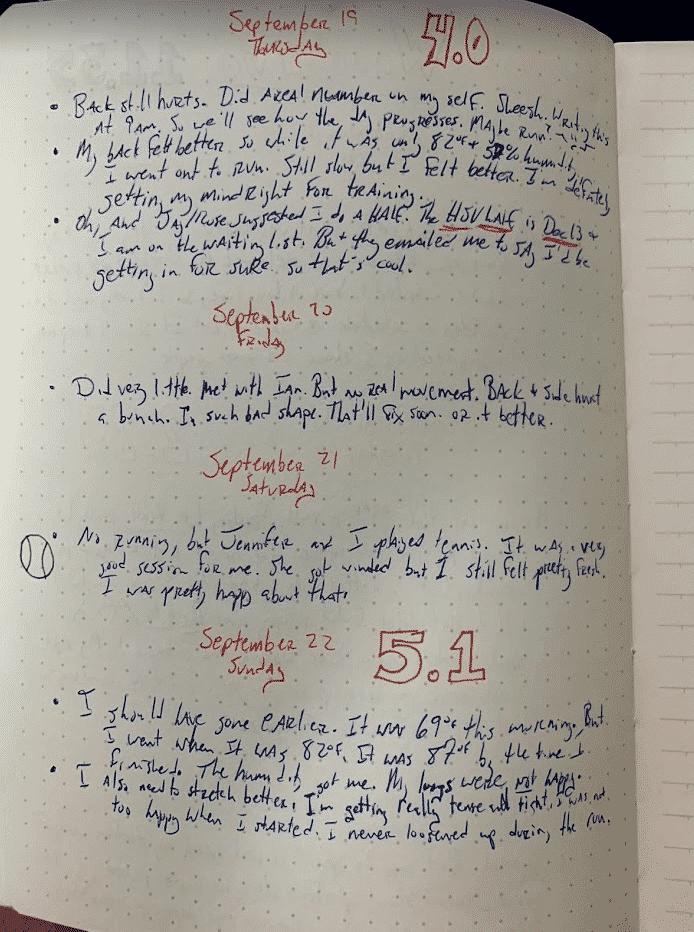 September 19
Thursday
4.0
• Back still hurts. Did a real number on my self. Sheesh. Writing this
at 9am. So we'll see how the day progresses. Maybe Run?
• My back felt better so while it was only 82°F + 52% humidity
I went out to run. Still slow, but I felt better. I'm definitely
getting my mind Right for training.
• Oh, and Jay/Rose suggested I do a HALF. The HSV HALF is Dec 13 +
I am on the waiting list. But they emailed me to say I'd be
getting in for sure. so that's cool.
September 20
Friday
• Did very little. Met with Ian. But no real movement. Back + side hurt
a bunch. In such bad shape. That'll fix soon. or it better.
September 21
Saturday
• No running, but Jennifer and I played tennis. It was a very
good session for me. She got winded but I still felt pretty fresh.
I was pretty happy about that.
September 22
Sunday
5.1
• I should have gone earlier. It was 69°F this morning, But
I went when It was 82°F. It was 87°F by the time I
finished. The humidity got me. My lungs were not happy.
• I Also need to stretch better. I'm getting really tense and tight, I was not
too happy when I started. I never loosened up during the run.